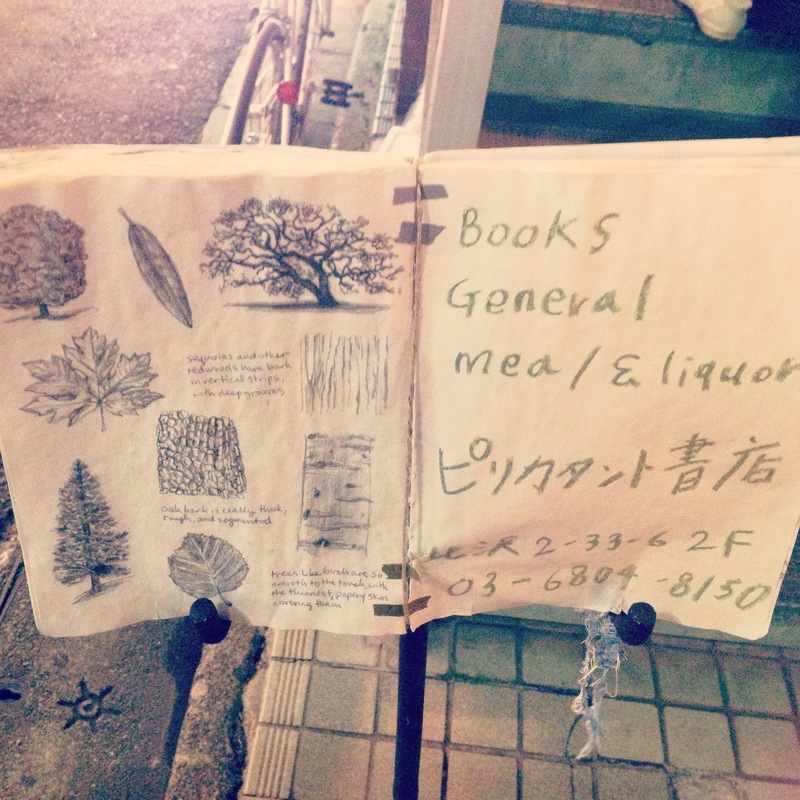 sequoias and other
redwoods have bark
in vertical strips,
with deep grooves
Oak bark is really thick,
rough, and segmented
trees like birch are so
smooth to the touch, with
the thinnest, papery skin
covering them
Books
General
meal & liquor
ピリカタント書店
北沢 2-33-6 2F
03-6804-8150